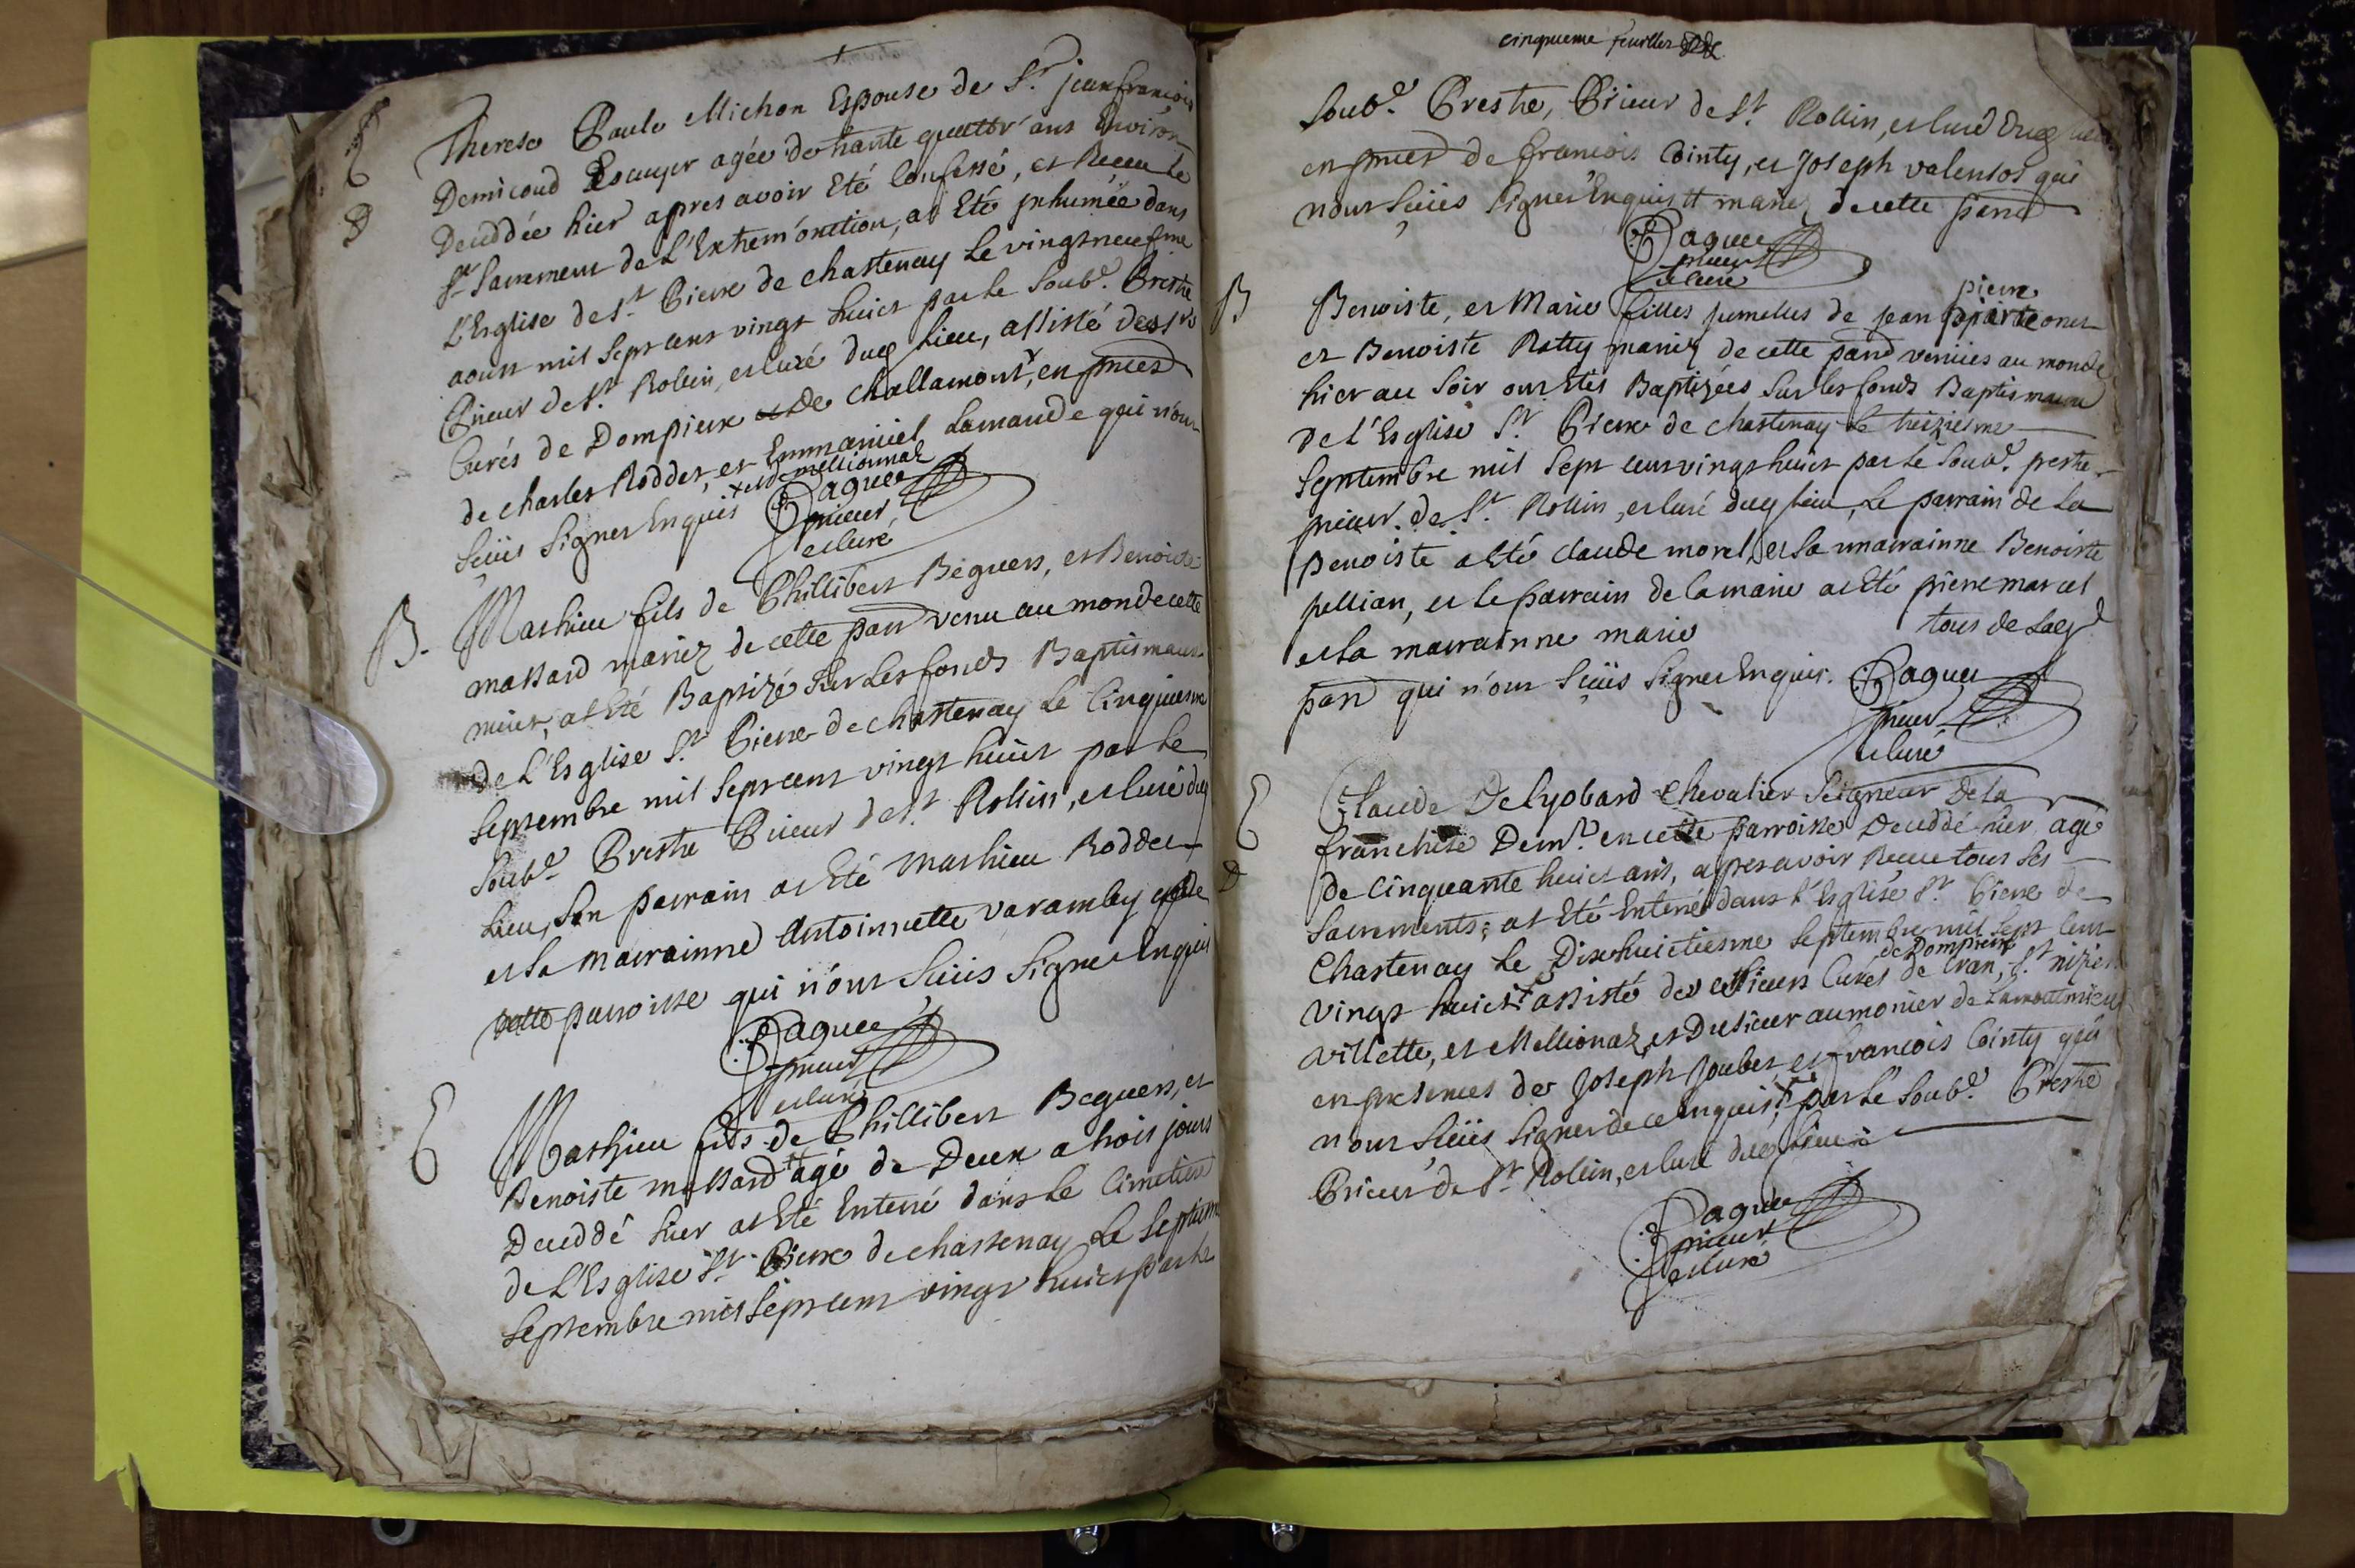 E
D
Therese Paule Michon Espouse de Sr. jean francois
Demicoud Escuyer agée de trante quattr' ans Environ
Deceddée hier apres avoir Eté Confessé, et Receu le
St Sacrement de L'Extrem'onction, at Eté jnhumée dans
L'Esglise de St. Pierre de chastenay Le vingtneufme
aoust mil sept cens vingt huict par le Soubd. Prestre
Prieur de St. Rollin, et Curé duq Lieu, assisté des srs
Curés de Dompierre et de challamont, en pnces
de charles Roddet, et Emmanuel Lamande qui n'ont
Sçüis Signer Enquis
+ et de mellionnaz
Paguee
prieur
et Curé
B.
Mathieu fils de Phillibert Beguers, et Benoiste
massard mariez de cette parr venu au monde cette
nuict, at Eté Baptizé sur Les fonds Baptismaux
de L'Esglise St. Pierre de chastenay Le Cinquiesme
Septembre mil Sept cens vingt huict par Le
Soubd. Prestre Prieur de St. Rollin, et Curé duq
Lieu, Son parrain at Eté Mathieu Roddet
et Sa marrainne Antoinnette varambey de
cette parroisse qui n'ont Sçüis Signer Enquis
Paguee
prieur
et Curé
E
Mathieu fils de Phillibert Beguers, et
Benoiste massard agé de Deux a trois jours
Deceddé hier at Eté Enterré dans Le Cimetiere
de L'Esglise St. Pierre de chastenay Le Septieme
Septembre mil Sept cens vingt huict par Le
cinquieme feuillet
Soubd. Prestre, Prieur de St. Rollin, et Curé duq lieu
en pnces de francois Cointy, et Joseph valensot qui
n'ont Sçüis Signer Enquis mariez de cette parr
Paguee
prieur
et Curé
B
Benoiste, et Marie filles jumelles de jean pierre
et Benoiste Ratty mariez de cette parr venües au monde
hier au Soir ont Etés Baptizées Sur les fonds Baptismaux
De L'Esglise St. Pierre de chastenay Le treiziesme
Septembre mil Sept cens vingt huict par Le Soubd. prestre
prieur de St. Rollin, et Curé duq Lieu, Le parrain de La
Benoiste at Eté claude morel, et Sa marrainne Benoiste
pellian, et le parrain de la marie at Eté pierre marcel
et Sa marrainne marie tous de Lad
parr qui n'ont Sçüis Signer Enquis.
Paguee
prieur
et Curé
E
D
Claude De Lyobard Chevalier Seigneur De La
franchise Demt. en cette parroisse Deceddé hier agé
De Cinquante huict ans, apres avoir Receu tous Ses
Sacrements; at Eté Enterré dans L'Esglise St. Pierre de
Chastenay Le Dixhuictiesme Septembre mil Sept Cens
vingt huict assisté des Sieurs Curés de Cran, de Dompierre St. nizier
villette, et Mellionaz, et Du Sieur aumonier de
en presences de Joseph Joubert et francois Cointy qui
n'ont Sçüis Signer de ce enquis, par Le Soubd. Prestre
Prieur de St. Rollin, et Curé duq Lieu
Paguee
prieur
et Curé